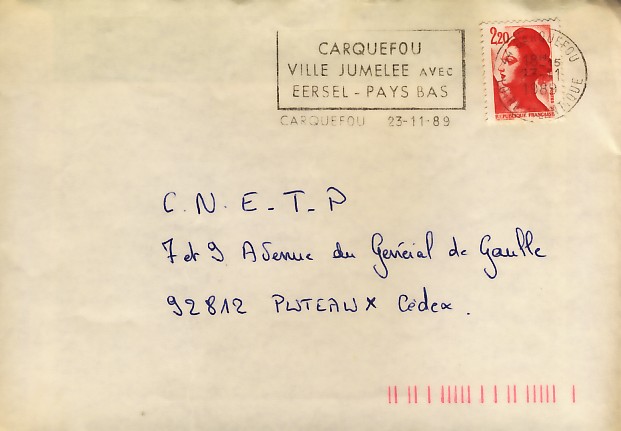 CARQUEFOU
VILLE JUMELEE AVEC
EERSEL - PAYS BAS
CARQUEFOU 23-11-89
2,20
REPUBLIQUE FRANÇAISE
C.N.E_T_P
7 et 9 Avenue du Général de Gaulle
92812 PUTEAUX Cédex.